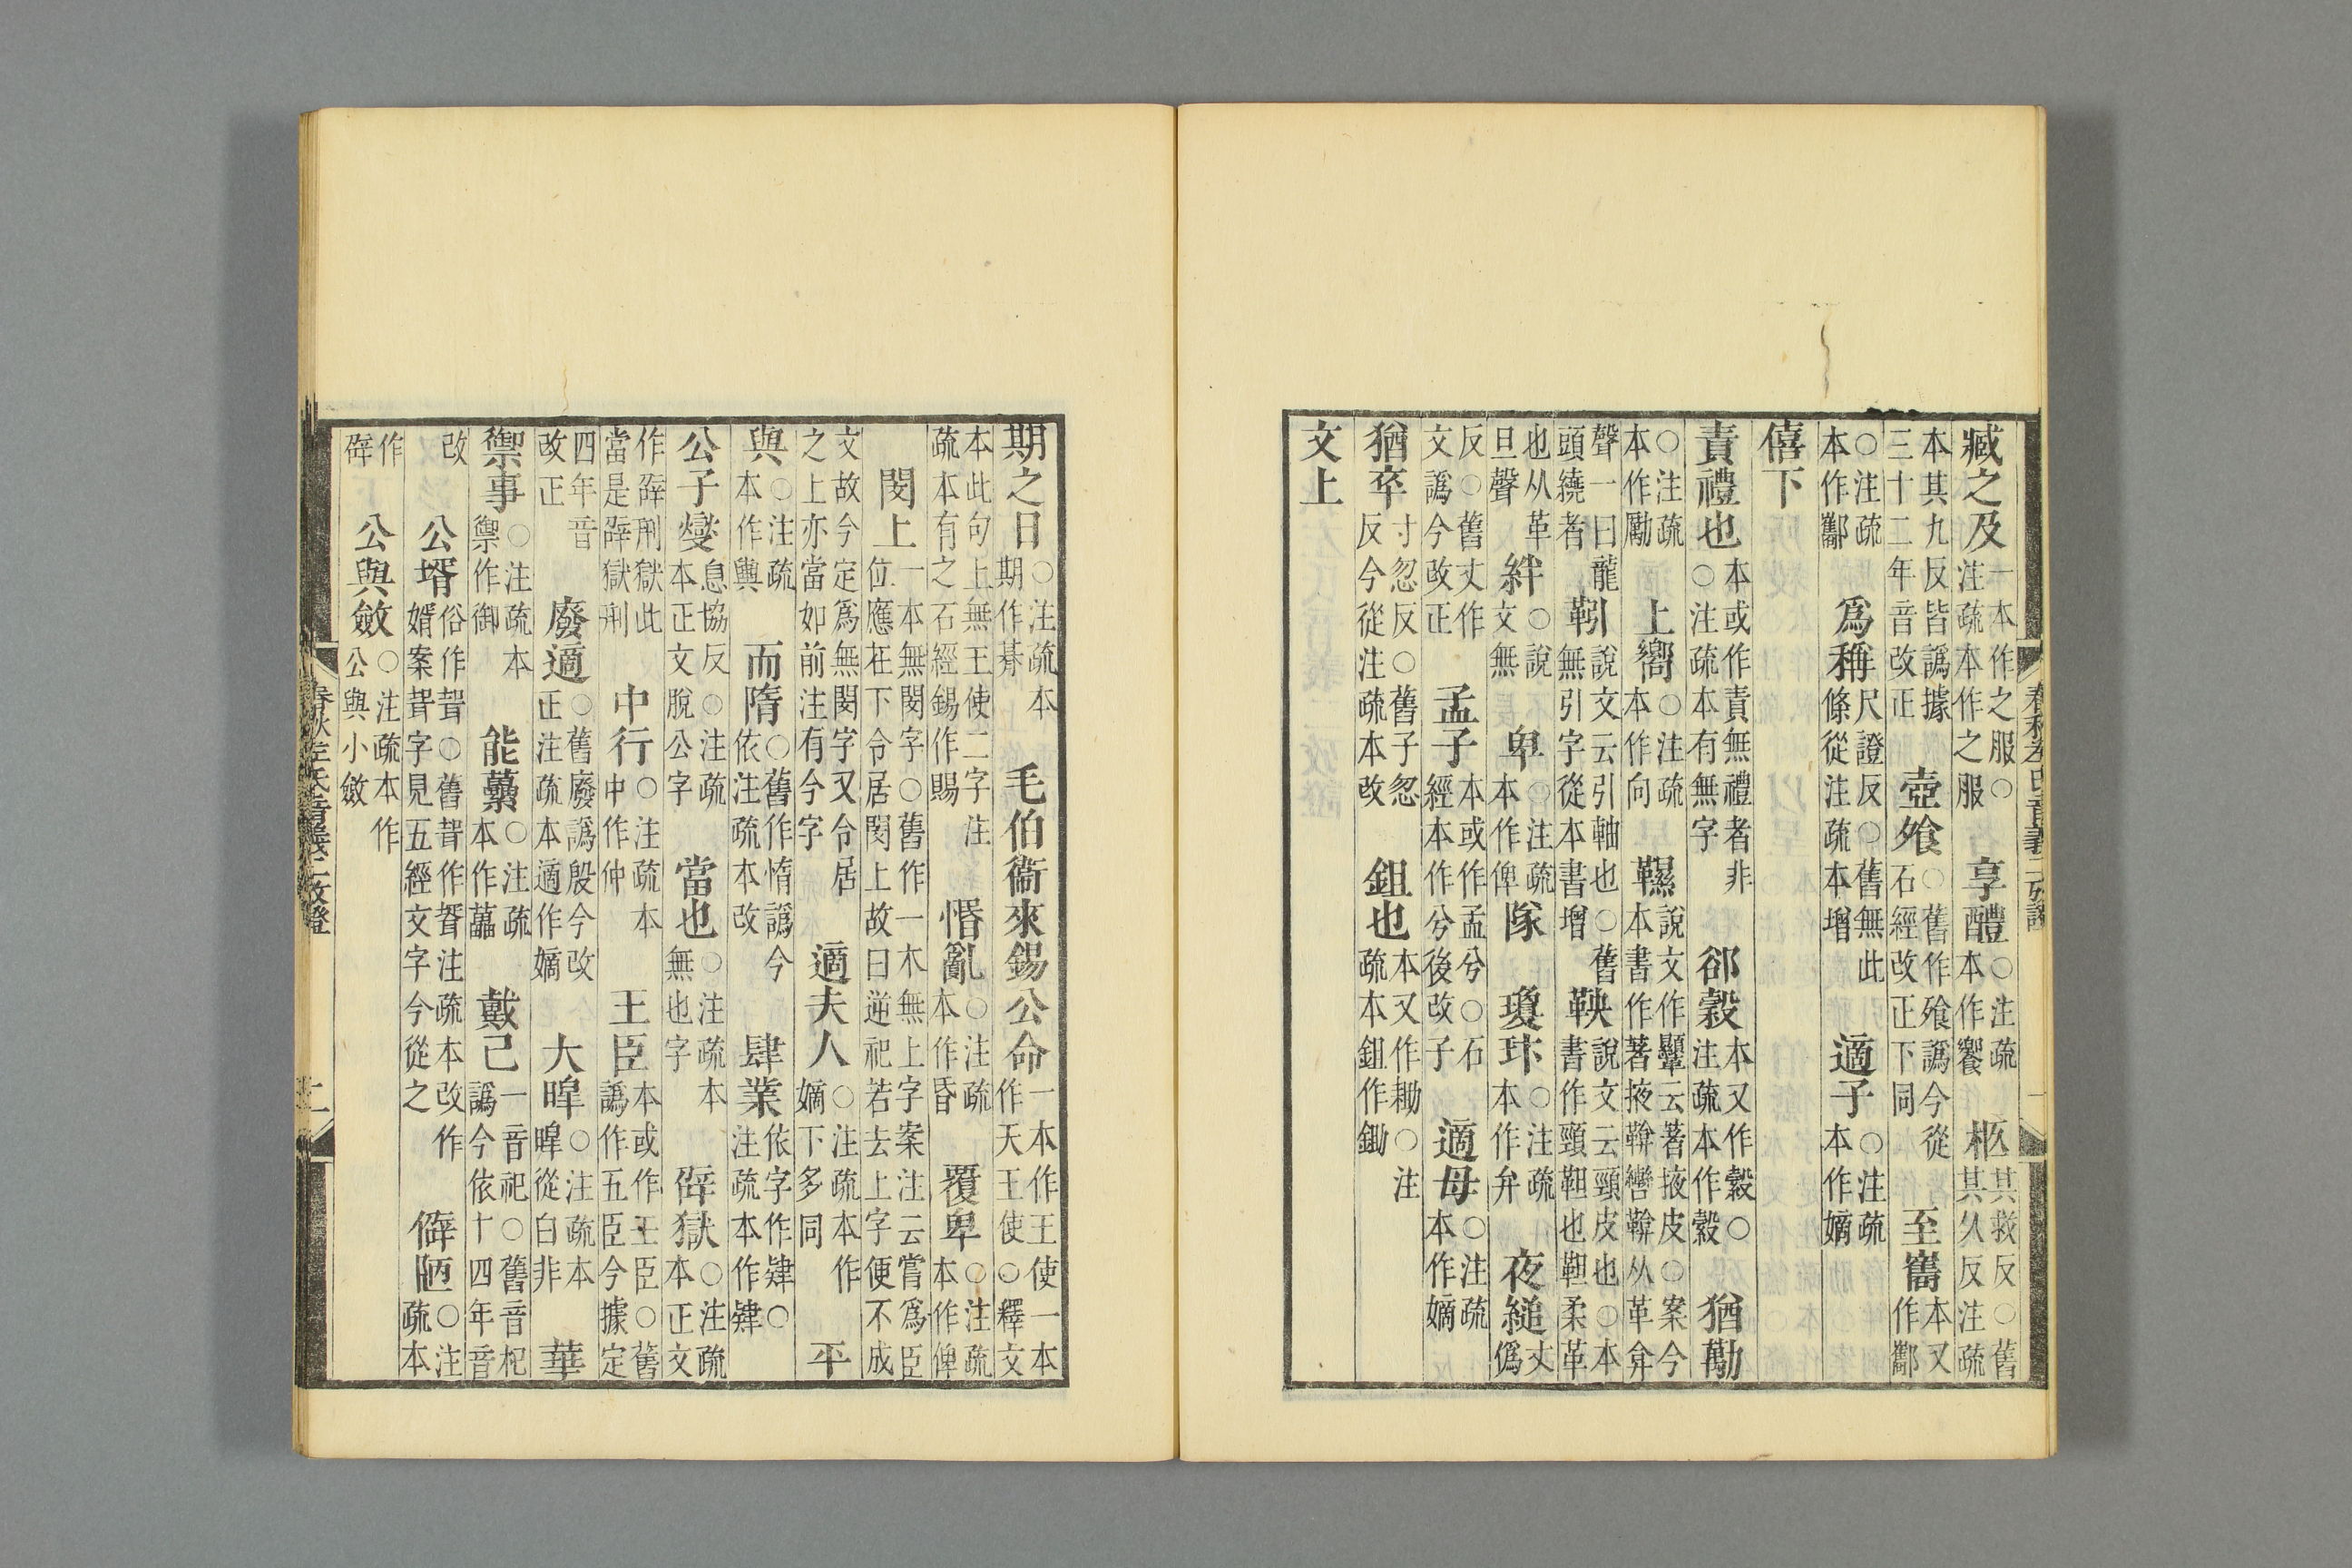 臧之及一本作之服○注疏本作之服 享醴○注疏本作饗 柩其救反○舊
本其九反皆譌據三十二年音改正 壺飧○舊作飱譌今從石經改正下同 至巂本又作酅
○注疏本作酅 爲稱尺證反○舊無此條從注疏本增 適子○注疏本作嫡
僖下
責禮也本或作責無禮者非○注疏本有無字 郤縠本又作縠○注疏本作縠 猶勱
○注疏本作勵 上嚮○注疏本作向 韅說文作䪜云著掖皮○案今本書作著掖鞥轡鞥从革弇
聲一曰龍頭繞者 靷說文云引軸也○舊無引字從本書增 鞅說文云頸皮也○本書作頸靼也靼柔革
也从革旦聲 絆○說文無 卑○注疏本作俾 隊 瓊玣○注疏本作弁 夜縋丈僞
反○舊丈作文譌今改正 孟子本或作孟兮○石經本作兮後改子 適母○注疏本作嫡
猶卒寸忽反○舊子忽反今從注疏本改 鉏也本又作耡○注疏本鉏作鋤
文上
春秋左氏音義二攷證
期之日○注疏本期作朞 毛伯衞來錫公命一本作王使一本作天王使○釋文
本此句上無王使二字注疏本有之石經錫作賜 惛亂○注疏本作昏 覆卑○注疏本作俾
閔上一本無閔字○舊作一木無上字案注云嘗爲臣位應在下令居閔上故曰逆祀若去上字便不成
文故今定爲無閔字又令居之上亦當如前注有今字 適夫人○注疏本作嫡下多同 平
與○注疏本作與 而隋○舊作惰譌今依注疏本改 肆業依字作肄○注疏本作肄
公子燮息協反○注疏本正文脫公字 當也○注疏本無也字 辟獄○注疏本正文
作辟刑獄此當是辟獄刑 中行○注疏本中作仲 王臣本或作王臣○舊譌作五臣今據定
四年音改正 廢適○舊廢譌殷今改正注疏本適作嫡 大皡○注疏本皡從白非 華
禦事○注疏本禦作御 能藟○注疏本作藟 戴己一音祀○舊音杞譌今依十四年音
改 公壻俗作聟○舊聟作㛰注疏本改作婿案聟字見五經文字今從之 僻陋○注疏本
作辟 公與斂○注疏本作公與小斂
春秋左氏音義二攷證 二